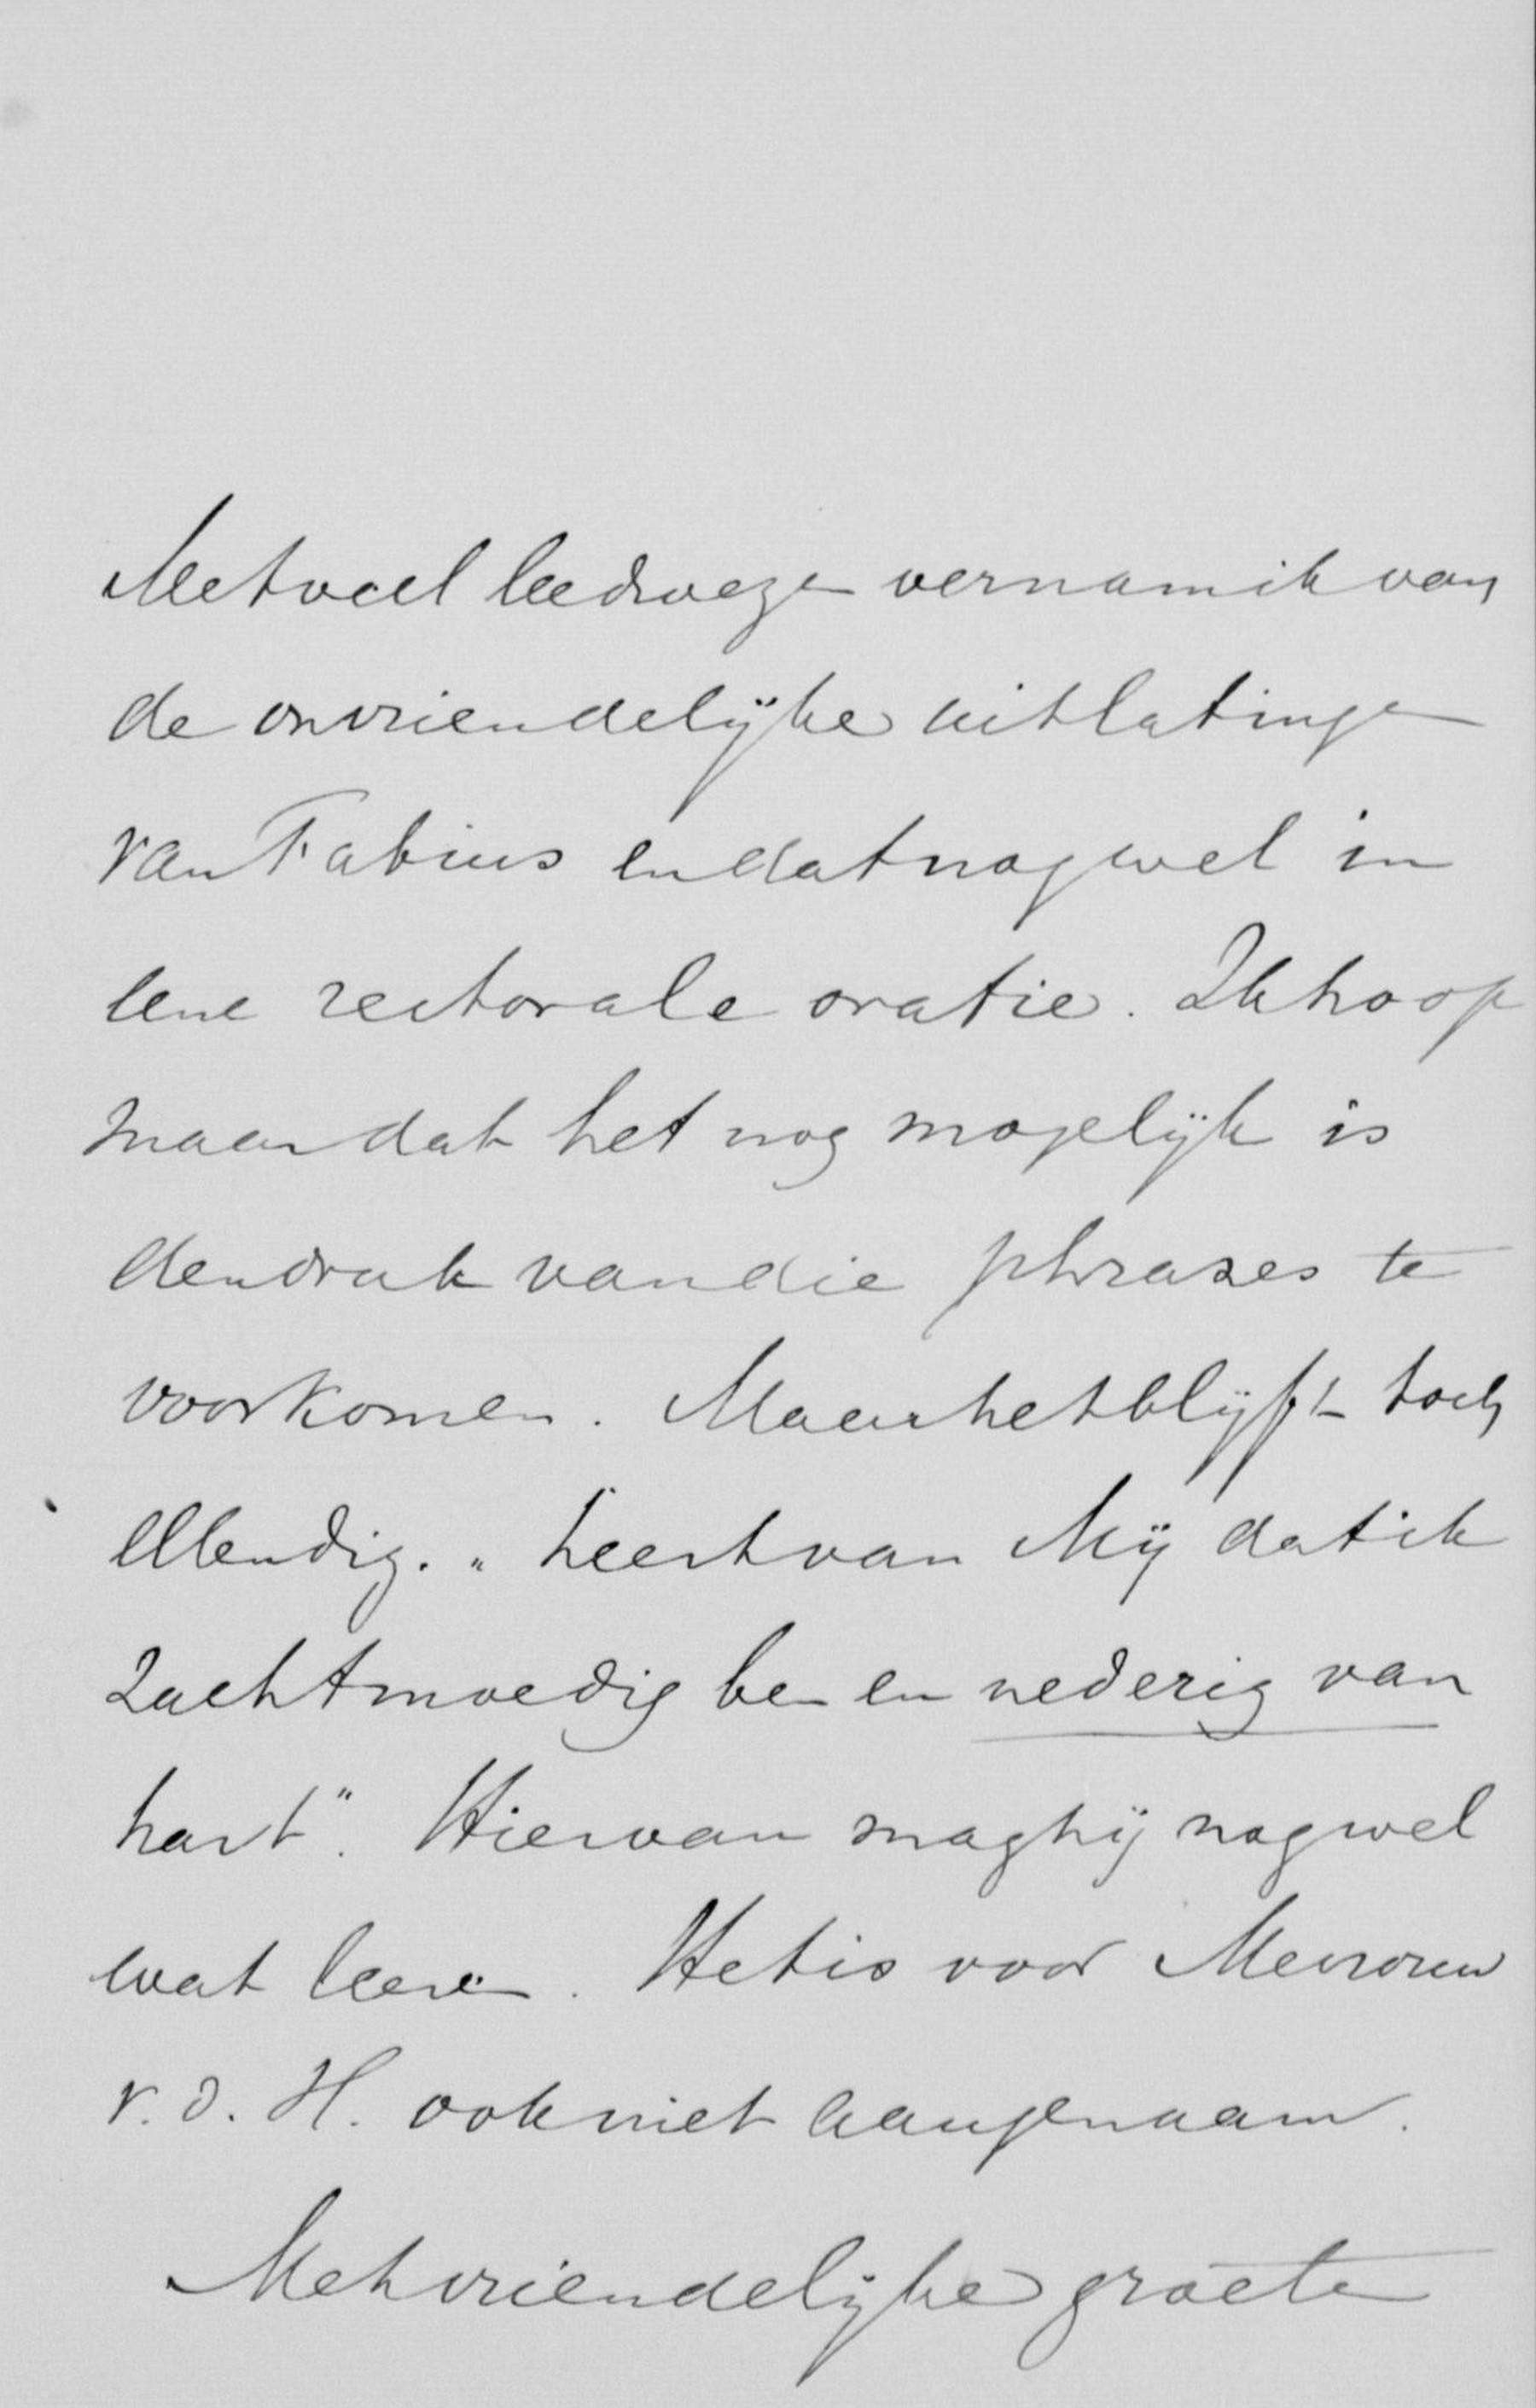 Met veel leedwezen vernam ik van
de onvriendelijke uitlatingen
van Fabius en dat nog wel in
eene rectorale oratie. Ik hoop
maar dat het nog mogelijk is
den druk van die phrases te
voorkomen. Maar het blijft toch
ellendig. „Leert van Mij dat ik
zachtmoedig ben en nederig van
hart". Hiervan mag hij nog wel
wat leeren. Het is voor Mevrouw
v. d. H. ook niet aangenaam.
Met vriendelijke groeten